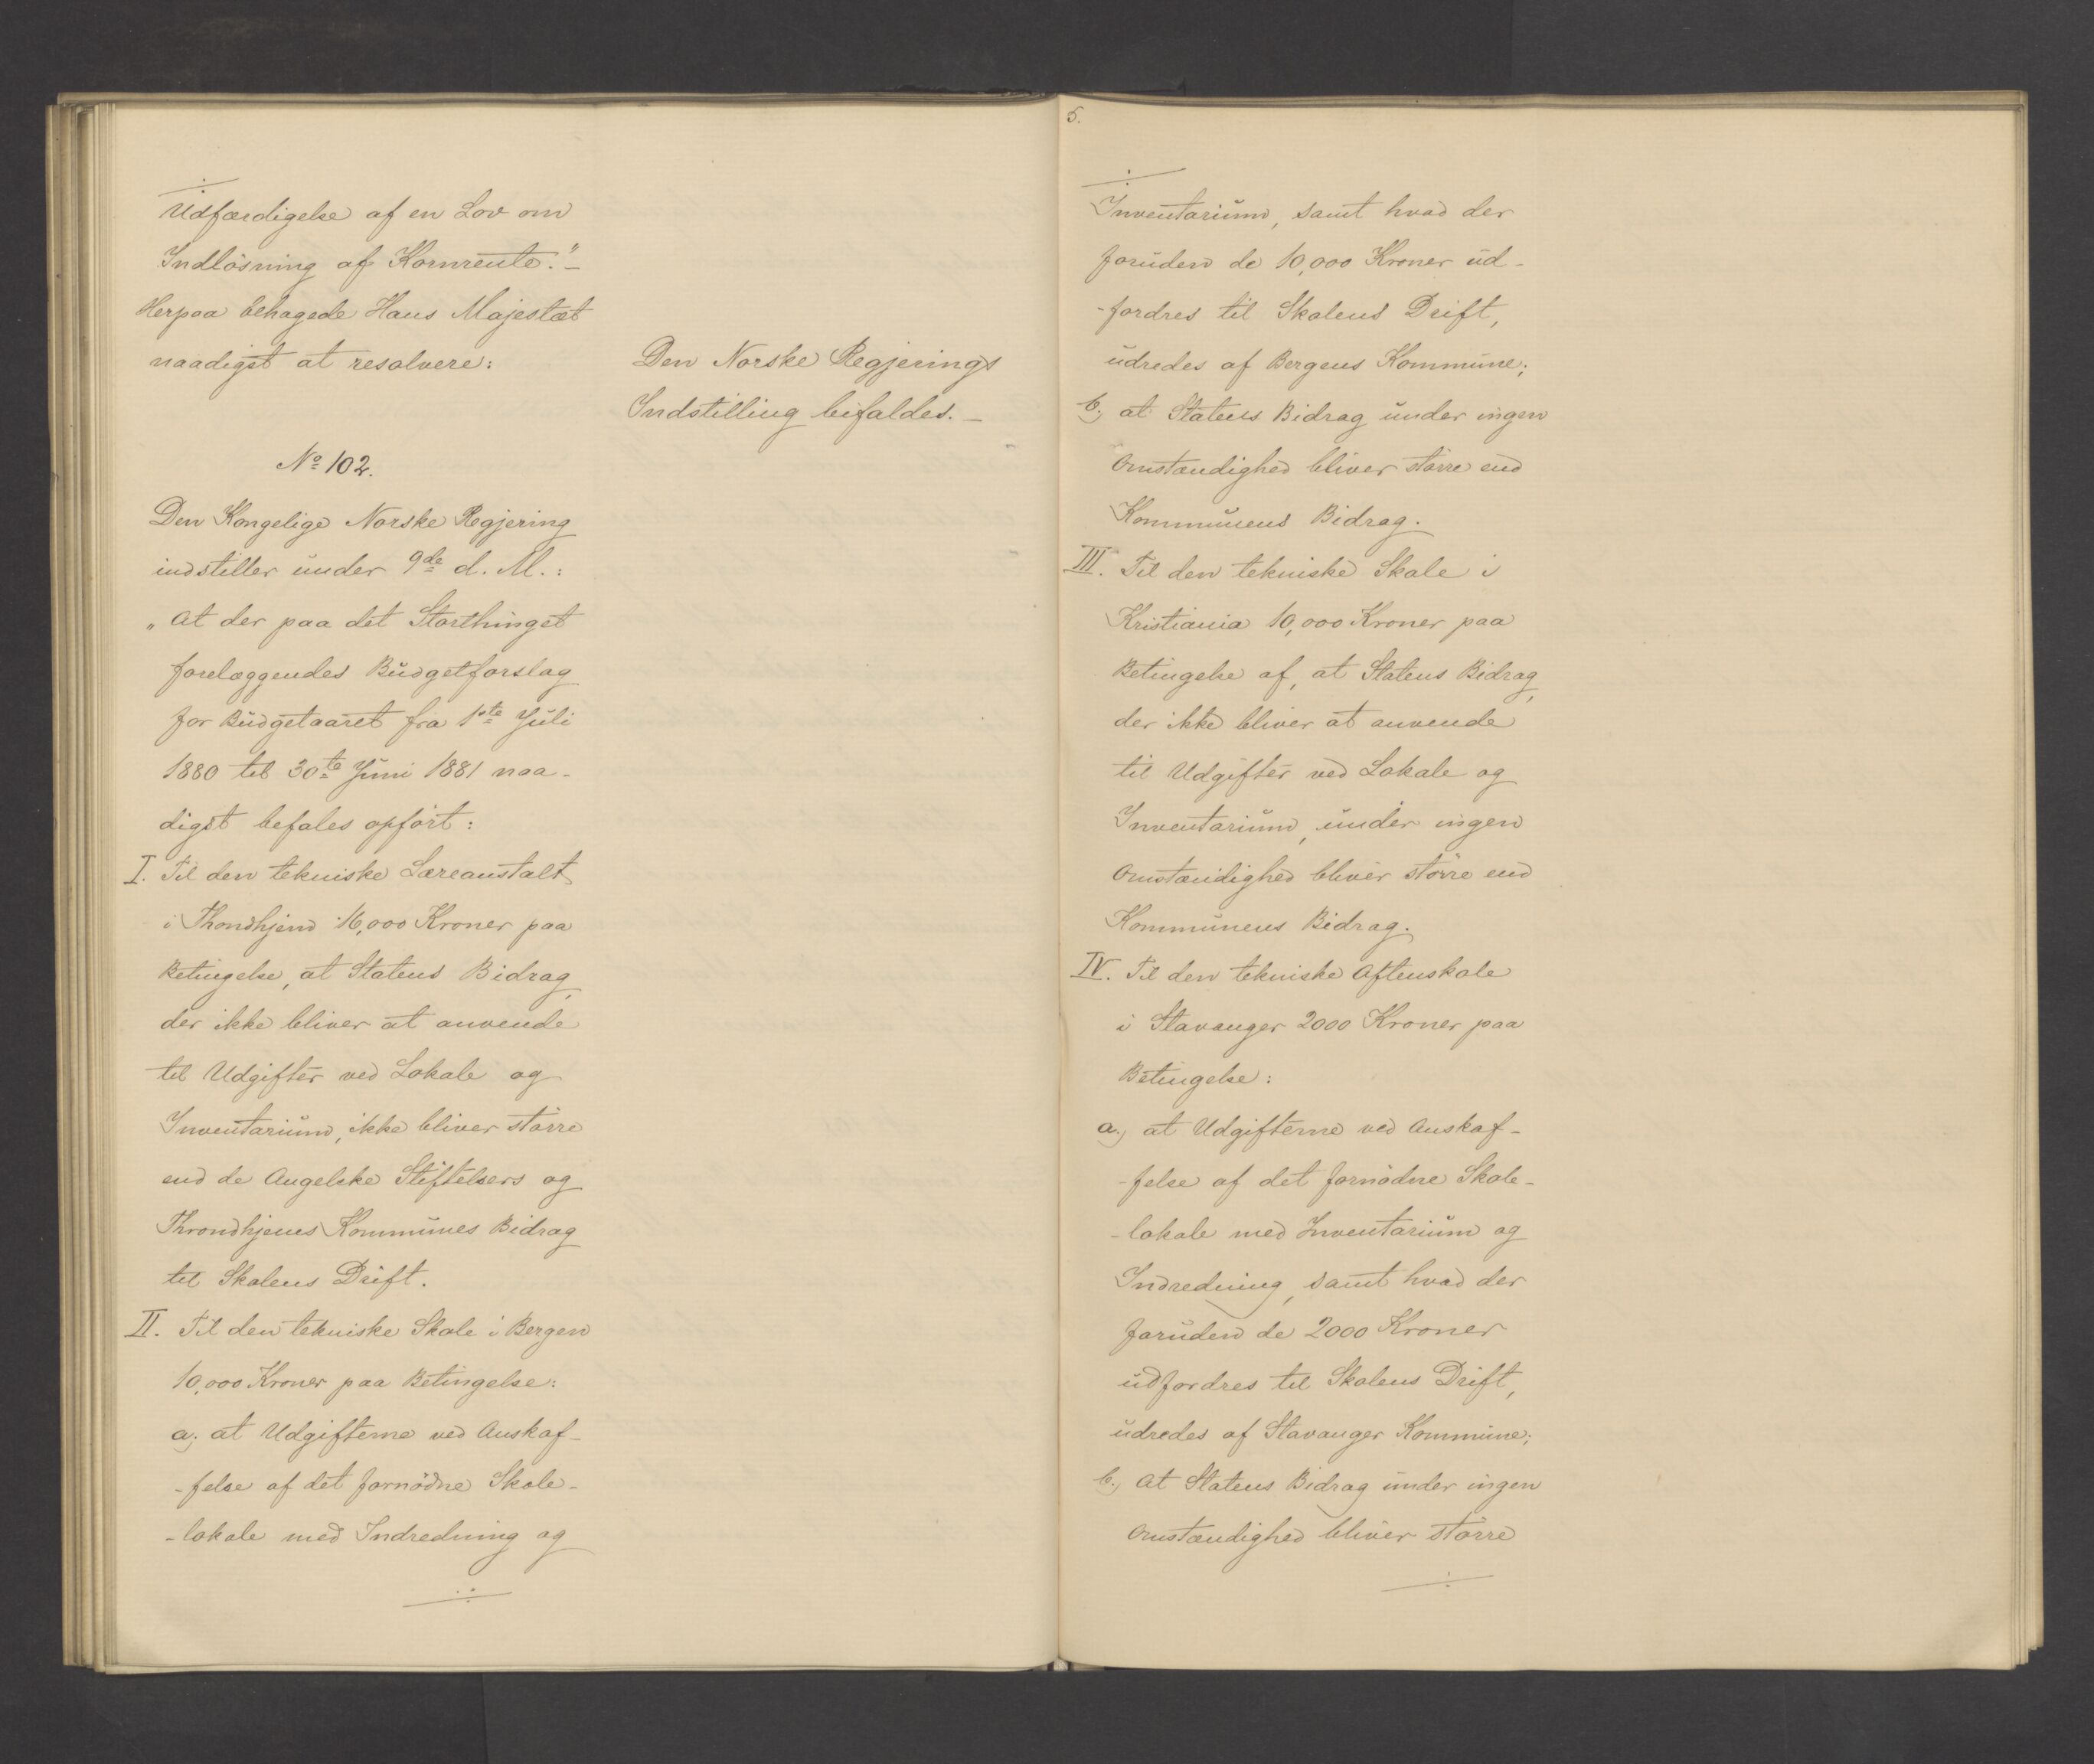 Udfærdigelse af en Lov om
Indlösning af Kornrente."–
Herpaa behagede Hans Majestæt
naadigst at resolvere:
Den Norske Regjerings
Indstilling bifaldes. –
No 102.
Den Kongelige Norske Regjering
indstiller under 9de d. M.:
„At der paa det Storthinget
forelæggendes Budgetforslag
for Budgetaaret fra 1ste Juli
1880 til 30te Juni 1881 naa-
digst befales opført:
I. Til den tekniske Læreanstalt
i Throndhjem 16,000 Kroner paa
Betingelse, at Statens Bidrag,
der ikke bliver at anvende
til Udgifter ved Lokale og
Inventarium, ikke bliver större
end de Angelske Stiftelsers og
Throndhjems Kommunes Bidrag
til Skolens Drift.
II. Til den tekniske Skole i Bergen
10,000 Kroner paa Betingelse:
a; at Udgifterne ved Anskaf-
-felse af det fornödne Skole-
-lokale med Indredning og
5.
Inventarium, samt hvad der
foruden de 10,000 Kroner ud-
-fordres til Skolens Drift,
udredes af Bergens Kommune;
b; at Statens Bidrag under ingen
Omstændighed bliver större end
Kommunens Bidrag.
III. Til den tekniske Skole i
Kristiania 10,000 Kroner paa
Betingelse af, at Statens Bidrag,
der ikke bliver at anvende
til Udgifter ved Lokale og
Inventarium, under ingen
Omstændighed bliver större end
Kommunens Bidrag.
IV. Til den tekniske Aftenskole
i Stavanger 2000 Kroner paa
Betingelse:
a; at Udgifterne ved Anskaf-
-felse af det fornödne Skole-
-lokale med Inventarium og
Indredning, samt hvad der
foruden de 2000 Kroner
udfordres til Skolens Drift,
udredes af Stavanger Kommune;
b; At Statens Bidrag under ingen
Omstændighed bliver större